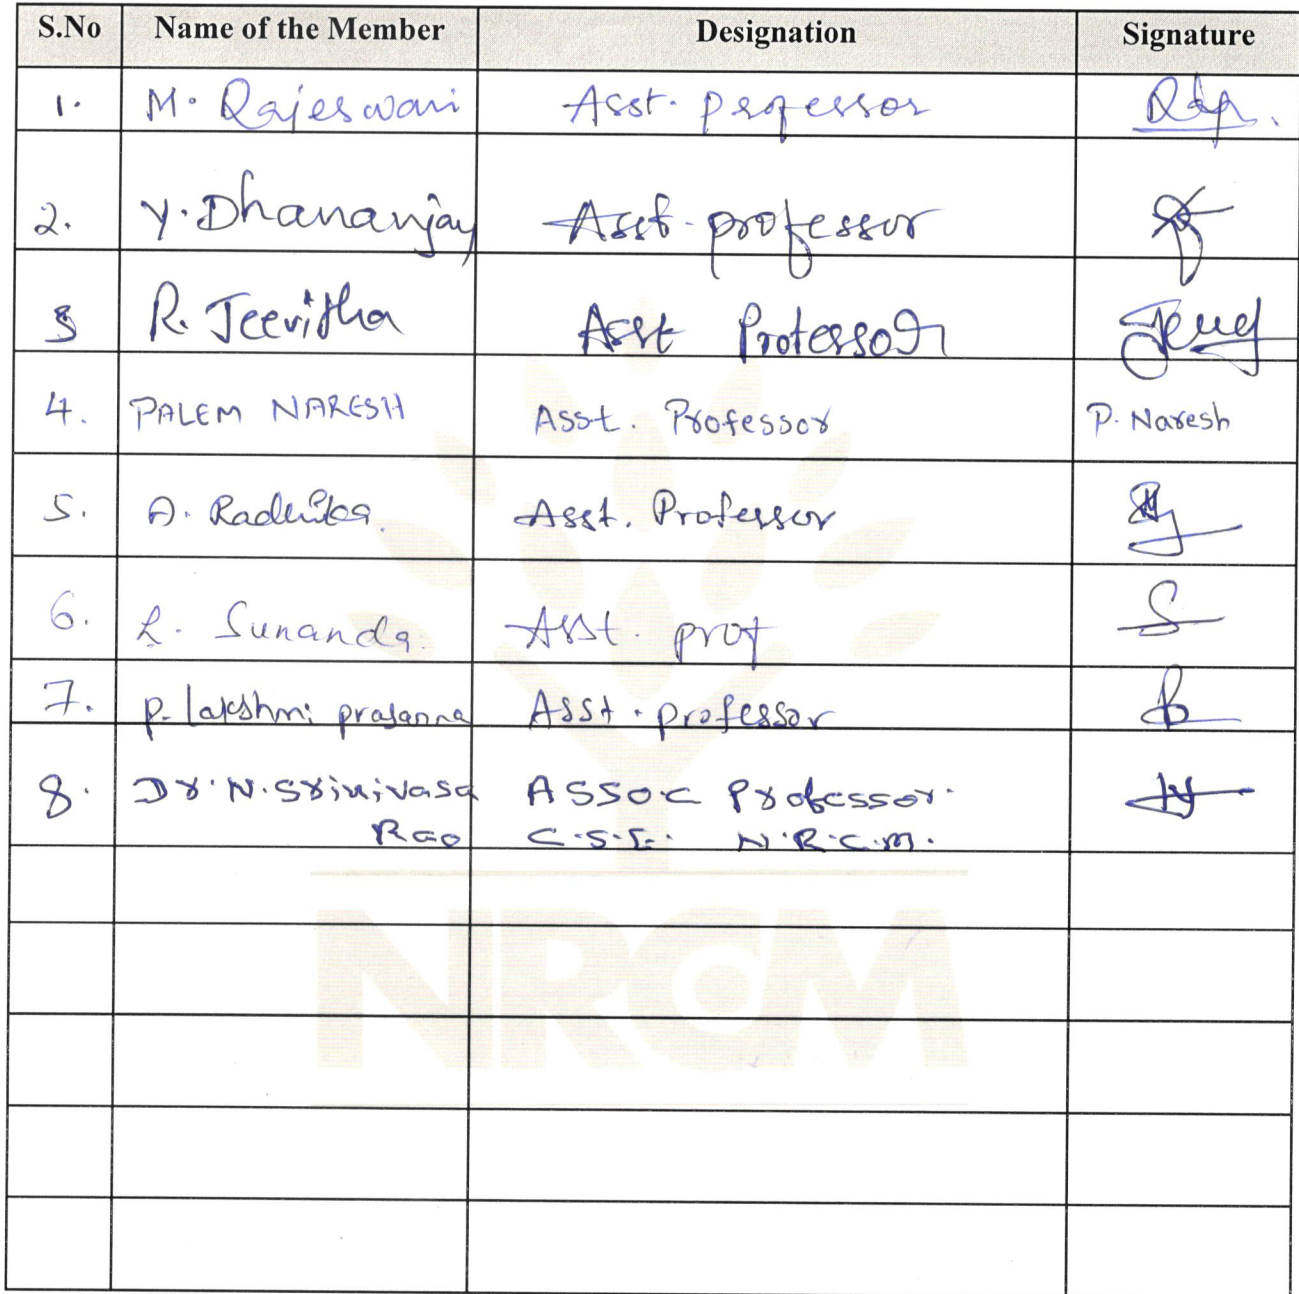 S.No Name of the Member Designation Signature
1. M. Rajeswari Asst. professor
2. Y. Dhananjay Asst. professor
3 R. Jeevitha Asst Professor
4. PALEM NARESH Asst. Professor P. Naresh
5. A. Radhika. Asst. Professor
6. L. Sunanda. Asst. prof
7. P. lakshmi prasanna Asst. professor
8. Dr. N. Srinivasa ASSOC Professor.
Rao C.S.E. N.R.C.M.
NRCM